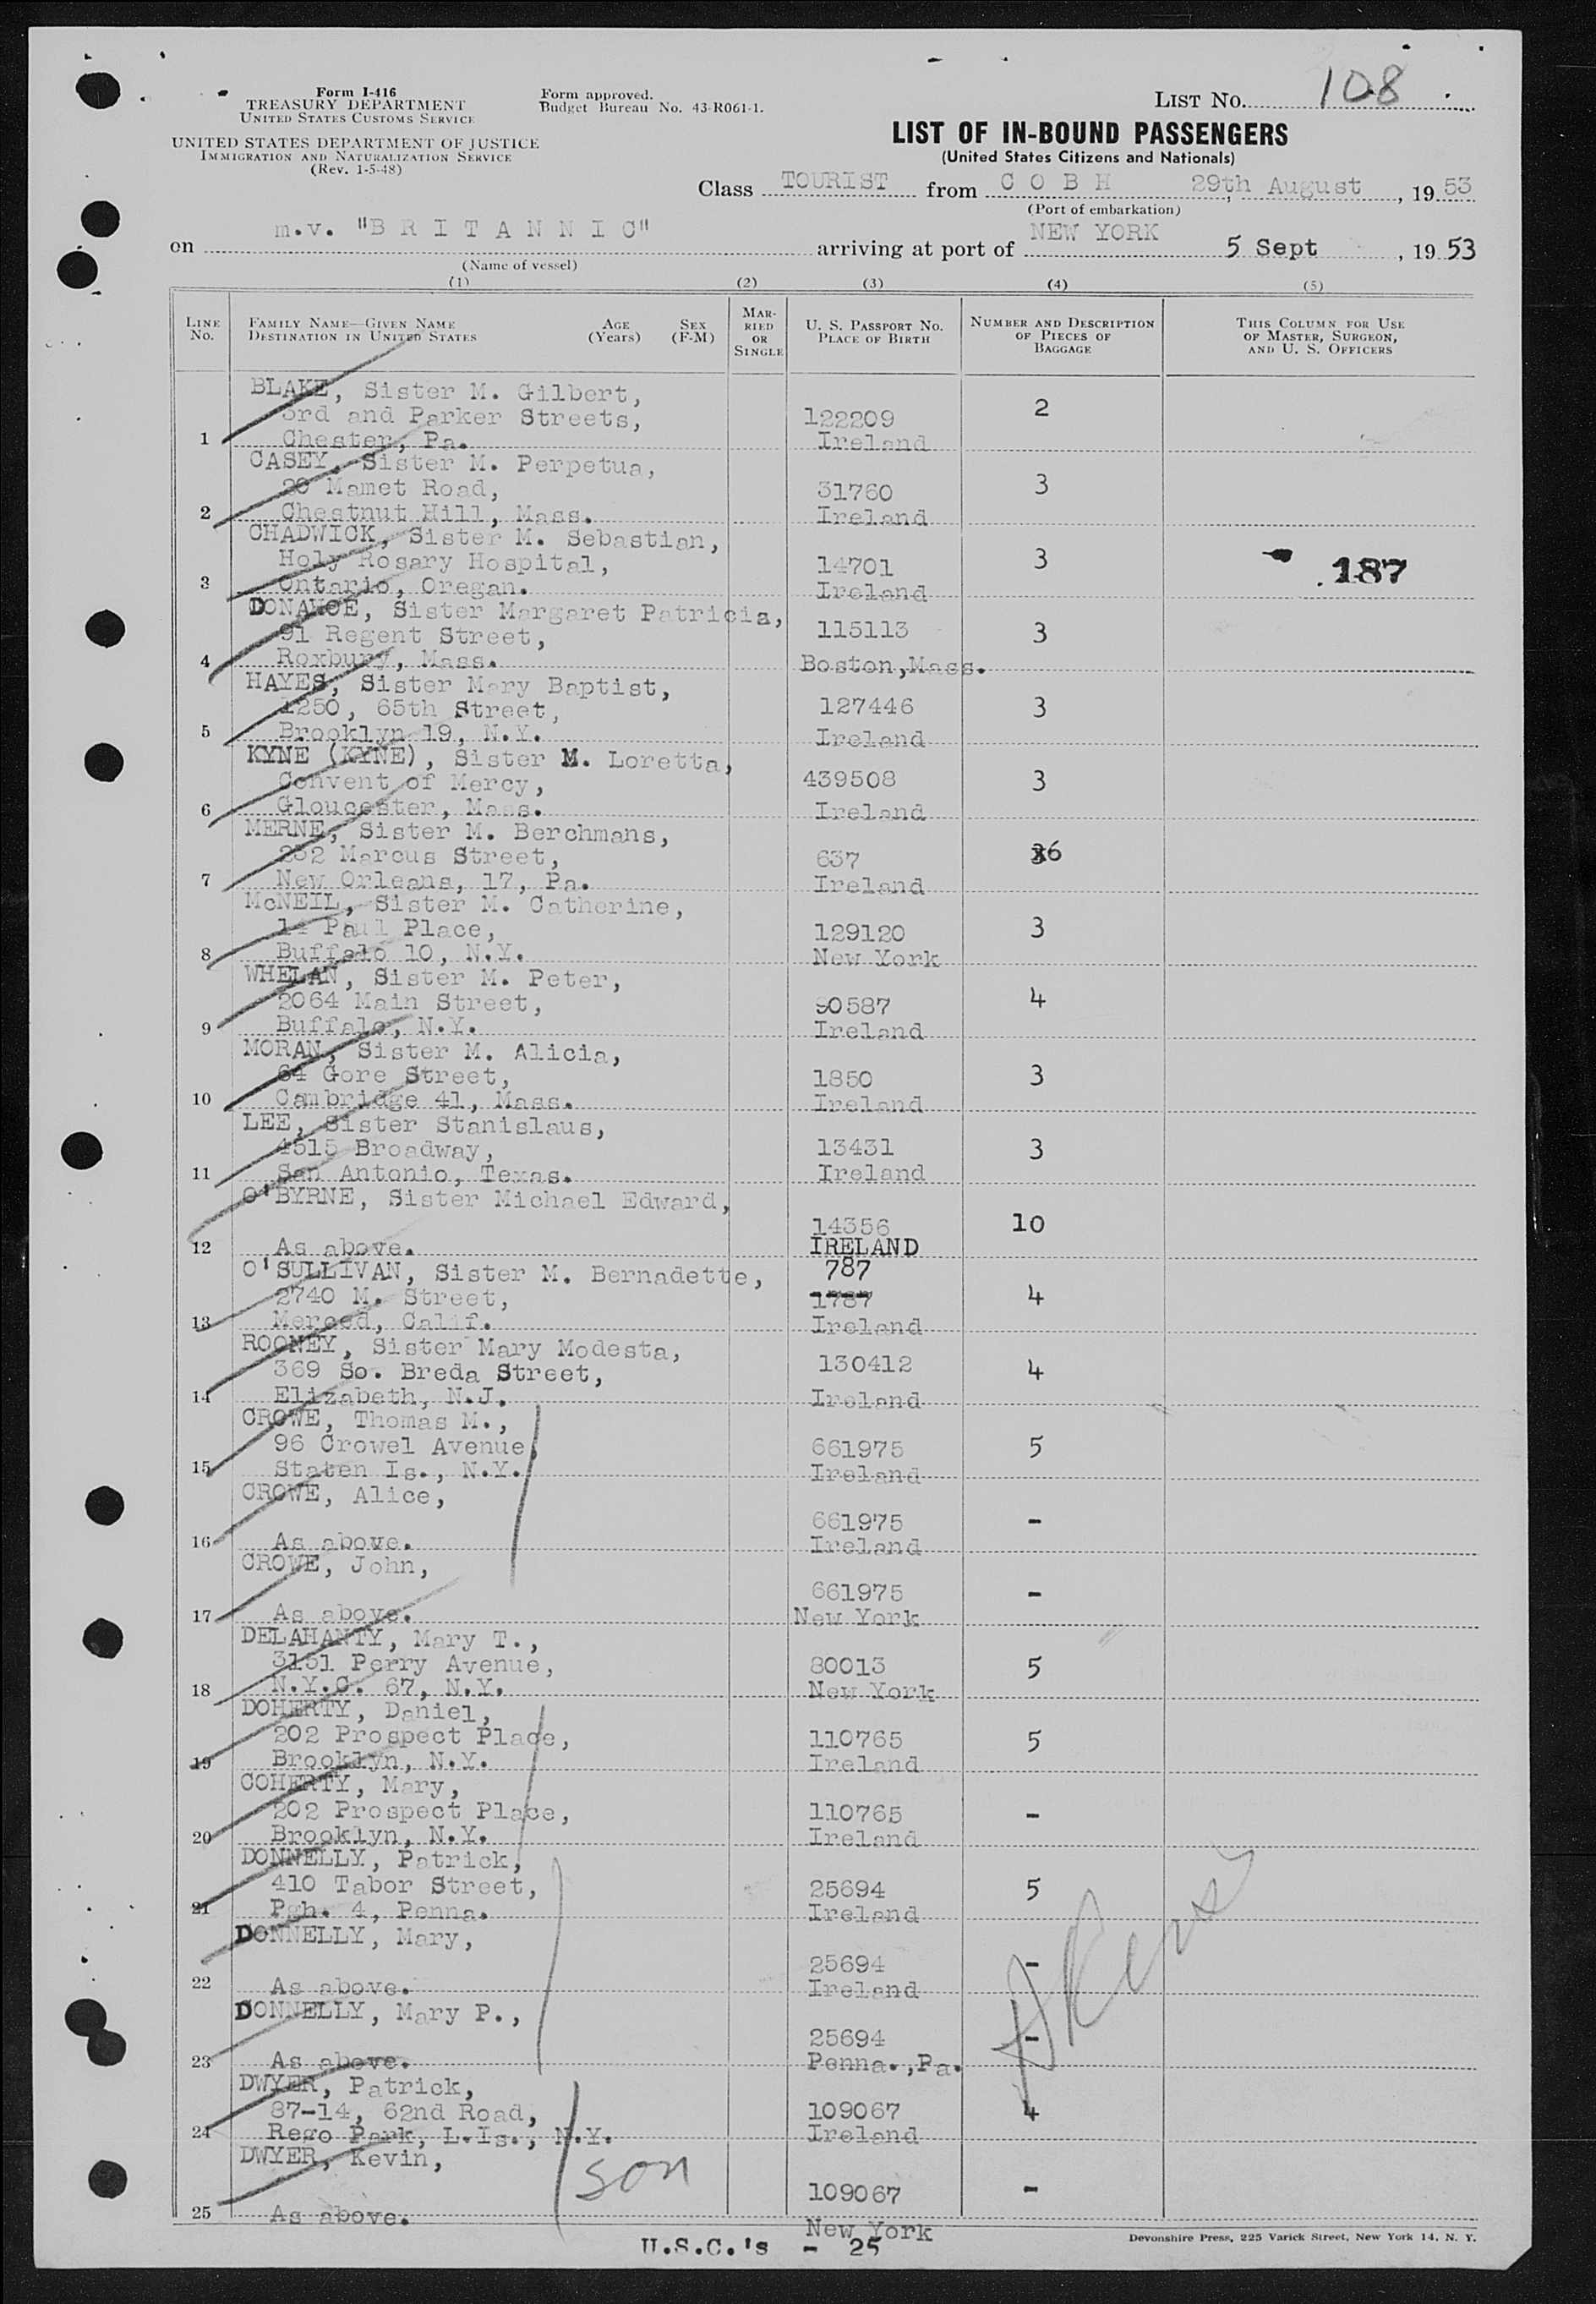 Form I-416
TREASURY DEPARTMENT
UNITED STATES CUSTOMS SERVICE
UNITED STATES DEPARTMENT OF JUSTICE
IMMIGRATION AND NATURALIZATION SERVICE
(Rev. 1-5-48)
Form approved.
Budget Bureau No. 43-R061-1.
LIST No. 108
LIST OF IN-BOUND PASSENGERS
(United States Citizens and Nationals)
Class TOURIST from C O B H 29th August, 1953
(Port of embarkation)
on m.v. "B R I T A N N I C" arriving at port of NEW YORK 5 Sept, 1953
(Name of vessel)
(1) (2) (3) (4) (5)
LINE No. FAMILY NAME—GIVEN NAME DESTINATION IN UNITED STATES AGE (Years) SEX (F-M) MARRIED OR SINGLE U. S. PASSPORT NO. PLACE OF BIRTH NUMBER AND DESCRIPTION OF PIECES OF BAGGAGE THIS COLUMN FOR USE OF MASTER, SURGEON, AND U. S. OFFICERS
BLAKE, Sister M. Gilbert,
3rd and Parker Streets, 122209 2
1 Chester, Pa. Ireland
CASEY, Sister M. Perpetua,
20 Mamet Road, 31760 3
2 Chestnut Hill, Mass. Ireland
CHADWICK, Sister M. Sebastian,
Holy Rosary Hospital, 14701 3 187
3 Ontario, Oregan. Ireland
DONAHOE, Sister Margaret Patricia,
91 Regent Street, 115113 3
4 Roxbury, Mass. Boston,Mass.
HAYES, Sister Mary Baptist,
1250, 65th Street, 127446 3
5 Brooklyn 19, N.Y. Ireland
KYNE (KYNE), Sister M. Loretta,
Convent of Mercy, 439508 3
6 Gloucester, Mass. Ireland
MERNE, Sister M. Berchmans,
232 Marcus Street, 637 6
7 New Orleans, 17, Pa. Ireland
McNEIL, Sister M. Catherine,
14 Paul Place, 129120 3
8 Buffalo 10, N.Y. New York
WHELAN, Sister M. Peter,
2064 Main Street, 90587 4
9 Buffalo, N.Y. Ireland
MORAN, Sister M. Alicia,
64 Gore Street, 1850 3
10 Cambridge 41, Mass. Ireland
LEE, Sister Stanislaus,
4515 Broadway, 13431 3
11 San Antonio, Texas. Ireland
O'BYRNE, Sister Michael Edward,
14356 10
12 As above. IRELAND
O'SULLIVAN, Sister M. Bernadette, 787
2740 M. Street, 1787 4
13 Merced, Calif. Ireland
ROONEY, Sister Mary Modesta,
369 So. Breda Street, 130412 4
14 Elizabeth, N.J. Ireland
CROWE, Thomas M.,
96 Crowel Avenue, 661975 5
15 Staten Is., N.Y. Ireland
CROWE, Alice,
661975 -
16 As above. Ireland
CROWE, John,
661975 -
17 As above. New York
DELAHANTY, Mary T.,
3151 Perry Avenue, 80013 5
18 N.Y.C. 67, N.Y. New York
DOHERTY, Daniel,
202 Prospect Place, 110765 5
19 Brooklyn, N.Y. Ireland
COHERTY, Mary,
202 Prospect Place, 110765 -
20 Brooklyn, N.Y. Ireland
DONNELLY, Patrick,
410 Tabor Street, 25694 5
21 Pgh. 4, Penna. Ireland
DONNELLY, Mary,
25694 -
22 As above. Ireland
DONNELLY, Mary P.,
25694 -
23 As above. Penna.,Pa.
DWYER, Patrick,
87-14, 62nd Road, 109067 4
24 Rego Park, L.Is., N.Y. Ireland
DWYER, Kevin,
son 109067 -
25 As above. New York
U.S.C.'s - 25
Devonshire Press, 225 Varick Street, New York 14, N. Y.